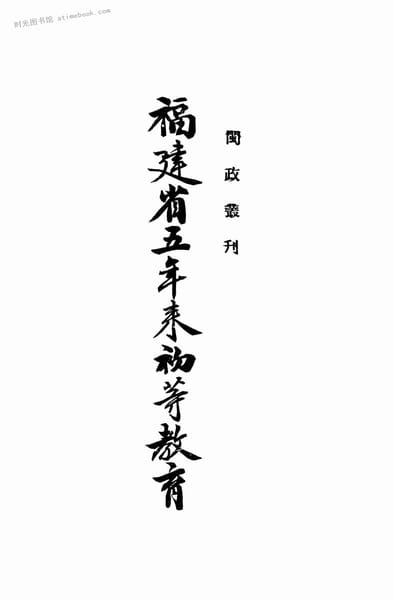 时光图书馆 atimebook.com
閩政叢刊
福建省五年来初等教育